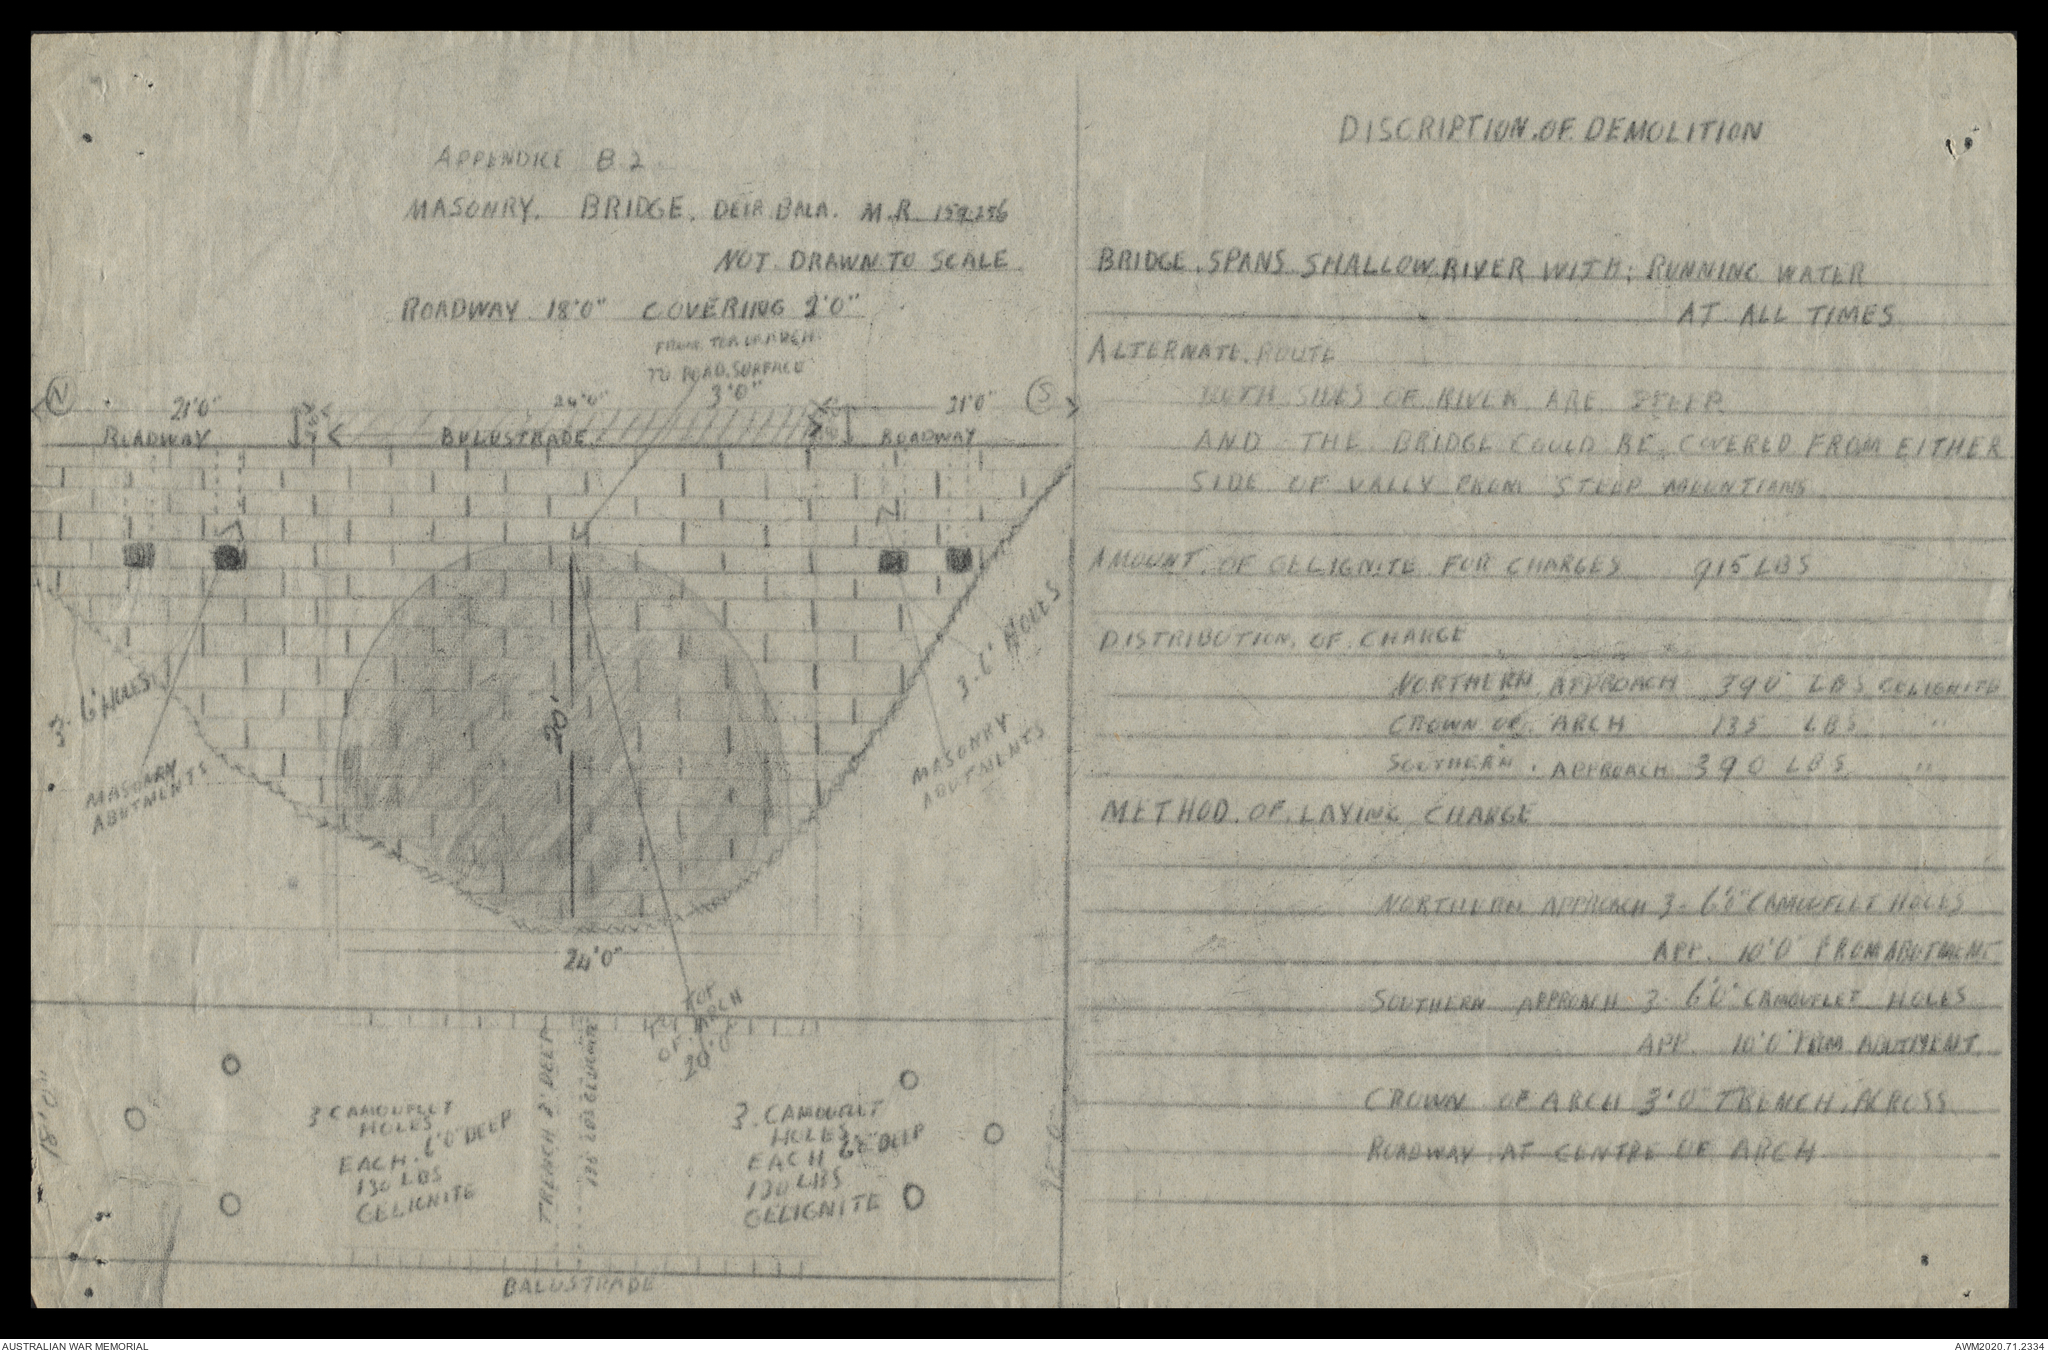 APPENDICE B 2
MASONRY. BRIDGE. DEIR BALA. M.R. 159256
NOT DRAWN TO SCALE
ROADWAY 18'0" COVERING 2'0"
FROM TOP OF ARCH
TO ROAD SURFACE
3'0"
N
21'0"
24'0"
21'0"
S
ROADWAY
BULUSTRADE
ROADWAY
3. 6' HOLES
MASONRY
ABUTMENTS
20'
3. 6' HOLES
MASONRY
ABUTMENTS
24'0"
TOP
OF ARCH
18'0"
3 CAMOUFLET
HOLES
EACH. 6'0" DEEP
130 LBS
GELIGNITE
TRENCH 3' DEEP
135 LBS GELIGNITE
3. CAMOUFLET
HOLES
EACH 6'0" DEEP
130 LBS
GELIGNITE
BALUSTRADE
DISCRIPTION. OF DEMOLITION
BRIDGE. SPANS SHALLOW RIVER WITH: RUNNING WATER
AT ALL TIMES
ALTERNATE. ROUTE
BOTH SIDES OF RIVER ARE STEEP
AND THE BRIDGE COULD BE COVERED FROM EITHER
SIDE OF VALLY FROM STEEP MOUNTIANS
AMOUNT. OF GELIGNITE FOR CHARGES 915 LBS
DISTRIBUTION. OF. CHARGE
NORTHERN APPROACH 390 LBS GELIGNITE
CROWN OF. ARCH 135 LBS "
SOUTHERN. APPROACH 390 LBS "
METHOD. OF. LAYING CHARGE
NORTHERN APPROACH 3- 6'0" CAMOUFLET HOLES
APP. 10'0" FROM ABUTMENT
SOUTHERN APPROACH 3- 6'0" CAMOUFLET HOLES
APP. 10'0" FROM ABUTMENT.
CROWN OF ARCH 3'0" TRENCH. ACROSS
ROADWAY AT CENTRE OF ARCH
AUSTRALIAN WAR MEMORIAL
AWM2020.71.2334